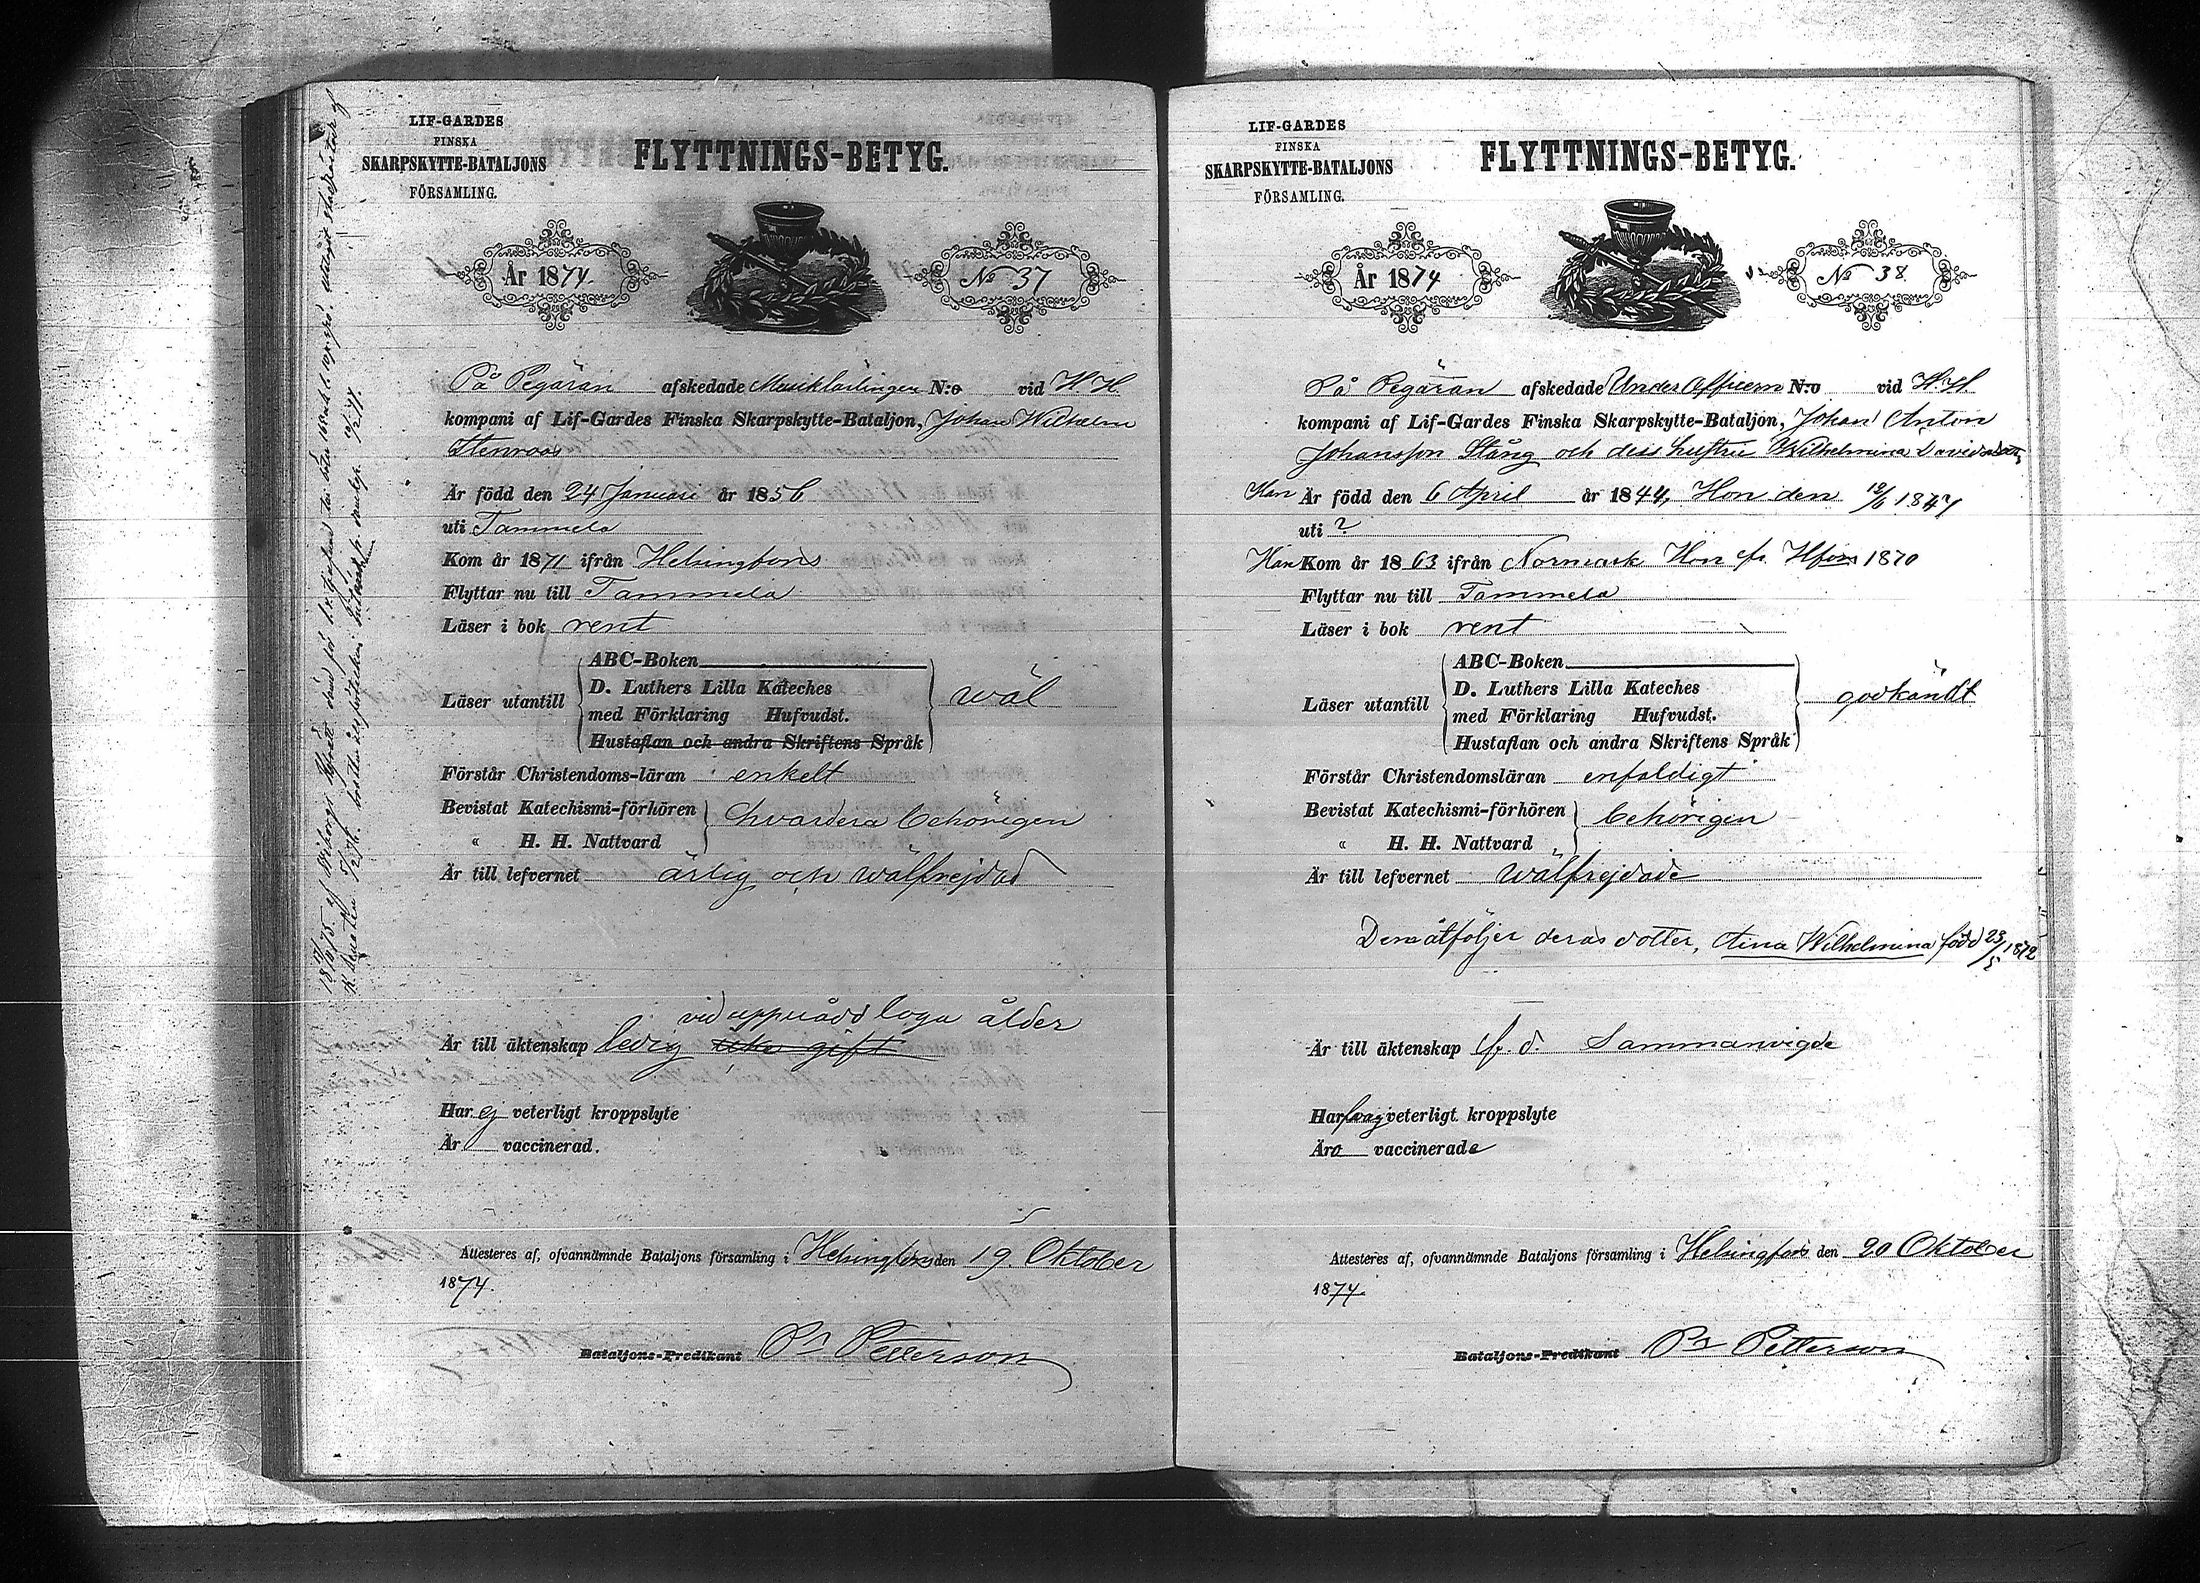 LIF-GARDES
FINSKA
SKARPSKYTTE-BATALJONS
FÖRSAMLING.
FLYTTNINGS-BETYG.
År 1874.
No 37
På begäran afskedade Musiklärlingen N:o vid H. H.
kompani af Lif-Gardes Finska Skarpskytte-Bataljon, Johan Wilhelm
Stenroos
Är född den 24 Januari år 1856
uti Tammela
Kom år 1871 ifrån Helsingfors
Flyttar nu till Tammela
Läser i bok rent
ABC-Boken
Läser utantill D. Luthers Lilla Kateches wäl
med Förklaring Hufvudst.
Hustaflan och andra Skriftens Språk
Förstår Christendoms-läran enkelt
Bevistat Katechismi-förhören hvardera behörigen
" H. H. Nattvard
Är till lefvernet ärlig och wälfrejdad
vid uppnådd laga ålder
Är till äktenskap ledig icke gift
Har ej veterligt kroppslyte
Är vaccinerad.
Attesteras af, ofvannämnde Bataljons församling i Helsingfors den 19. Oktober
1874.
Bataljons-Predikant Pr Petterson
LIF-GARDES
FINSKA
SKARPSKYTTE-BATALJONS
FÖRSAMLING.
FLYTTNINGS-BETYG.
År 1874
No 38.
På begäran afskedade Under Officern N:o vid H. H.
kompani af Lif-Gardes Finska Skarpskytte-Bataljon, Johan Anton
Johansson Stång och dess hustru Wilhelmina Davidsdotter
Han Är född den 6 April år 1844, Hon den 1847
uti ?
Han Kom år 1863 ifrån Normark Hon fr. Hfors 1870
Flyttar nu till Tammela
Läser i bok rent
ABC-Boken
Läser utantill D. Luthers Lilla Kateches godkändt
med Förklaring Hufvudst.
Hustaflan och andra Skriftens Språk
Förstår Christendomsläran enfaldigt
Bevistat Katechismi-förhören behörigen
" H. H. Nattvard
Är till lefvernet wälfrejdade
Dem åtföljer deras dotter, Aina Wilhelmina född 23/5 1872
Är till äktenskap f. d. Sammanvigde
Har veterligt kroppslyte
Äro vaccinerade
Attesteras af, ofvannämnde Bataljons församling i Helsingfors den 20 Oktober
1874.
Bataljons-Predikant Pr Petterson